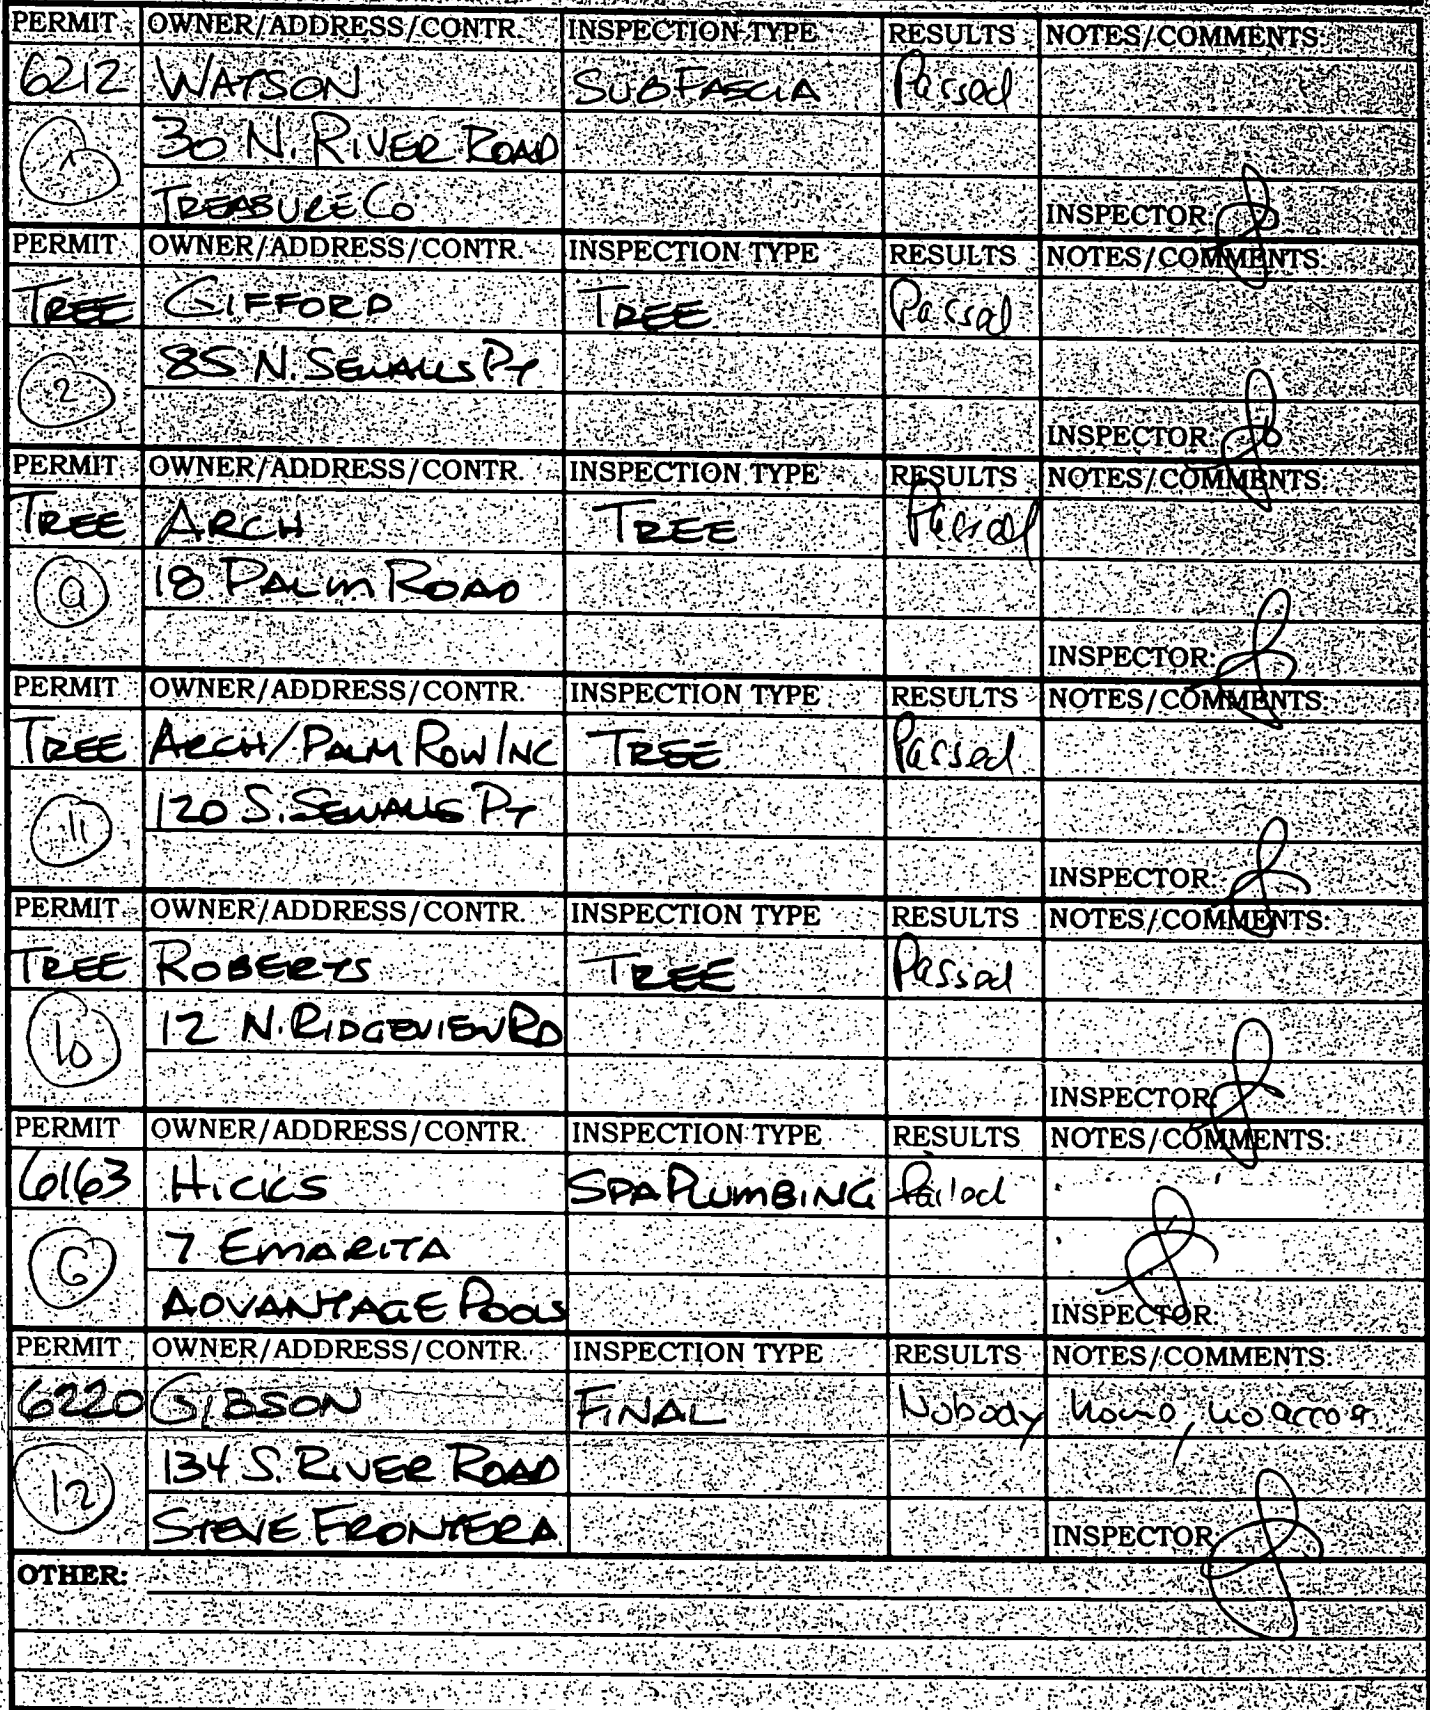 PERMIT OWNER/ADDRESS/CONTR. INSPECTION TYPE RESULTS NOTES/COMMENTS:
6212 WATSON SUBFASCIA Passed
1 30 N. RIVER ROAD
TREASURE CO INSPECTOR
PERMIT OWNER/ADDRESS/CONTR. INSPECTION TYPE RESULTS NOTES/COMMENTS:
TREE GIFFORD TREE Passed
2 85 N. SEWALLS PT
INSPECTOR:
PERMIT OWNER/ADDRESS/CONTR. INSPECTION TYPE RESULTS NOTES/COMMENTS:
TREE ARCH TREE Passed
18 PALM ROAD
INSPECTOR:
PERMIT OWNER/ADDRESS/CONTR. INSPECTION TYPE RESULTS NOTES/COMMENTS:
TREE ARCH/PALM ROW INC TREE Passed
11 120 S. SEWALLS PT
INSPECTOR:
PERMIT OWNER/ADDRESS/CONTR. INSPECTION TYPE RESULTS NOTES/COMMENTS:
TREE ROBERTS TREE Passed
10 12 N. RIDGEVIEW RD
INSPECTOR:
PERMIT OWNER/ADDRESS/CONTR. INSPECTION TYPE RESULTS NOTES/COMMENTS:
6163 HICKS SPA PLUMBING Failed
6 7 EMARITA
ADVANTAGE POOLS INSPECTOR:
PERMIT OWNER/ADDRESS/CONTR. INSPECTION TYPE RESULTS NOTES/COMMENTS:
6220 GIBSON FINAL Nobody home, no
12 134 S. RIVER ROAD
STEVE FRONTERA INSPECTOR
OTHER: